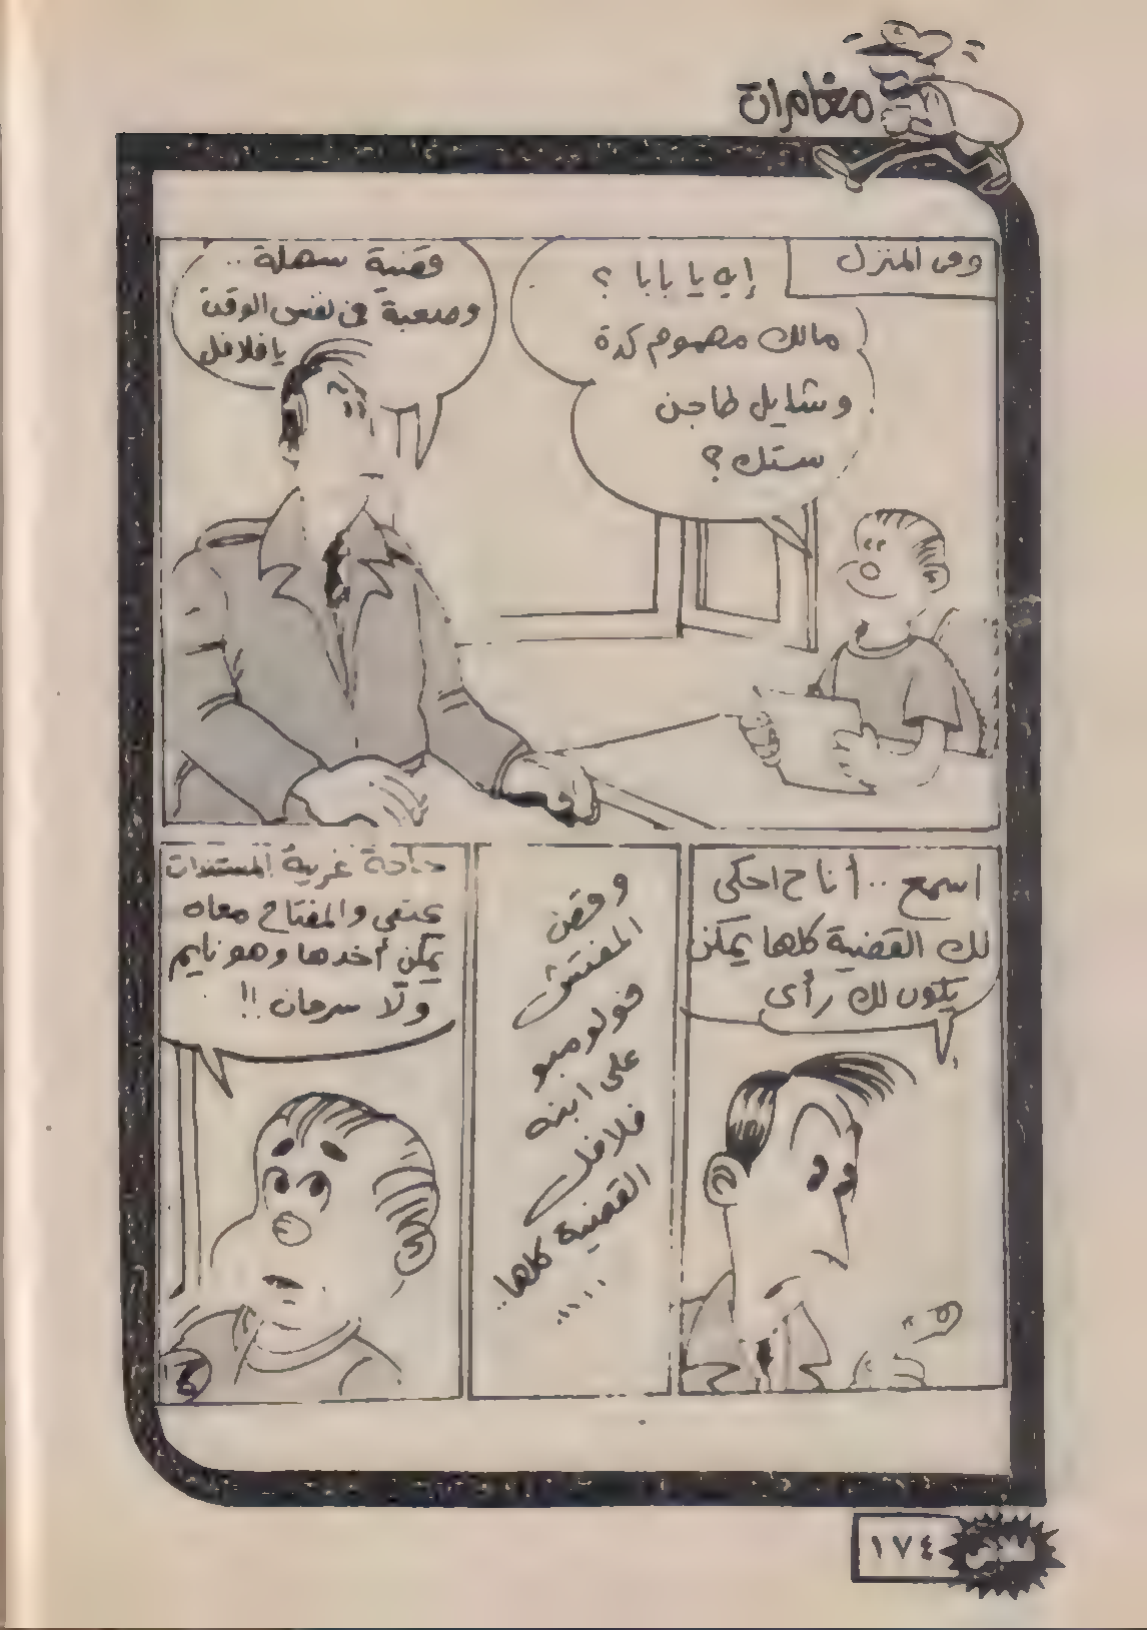 مغامرات
وفى المنزل
إيه يا بابا ؟
مالك مهموم كدة
وشايل طاجن
ستك ؟
قضية سهلة ..
وصعبة فى نفس الوقت
يا فلافل
اسمع .. أنا ح احكى
لك القضية كلها يمكن
يكون لك رأى
وقص
المفتش
فولومبو
على ابنه
فلافل
القضية كلها..
.....
حاجة غريبة المستندات
تختفى والمفتاح معاه
يمكن أخدها وهو نايم
ولّا سرحان !!
١٧٤